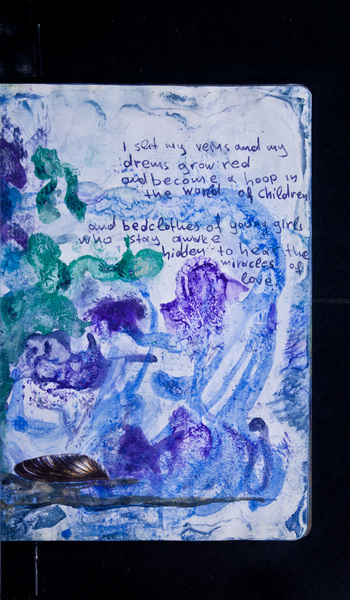 I slit my veins and my
drems grow red
and become a hoop in
the world of children
and bedclothes of young girls
who stay awake
hidden to hear the
miracles of
love